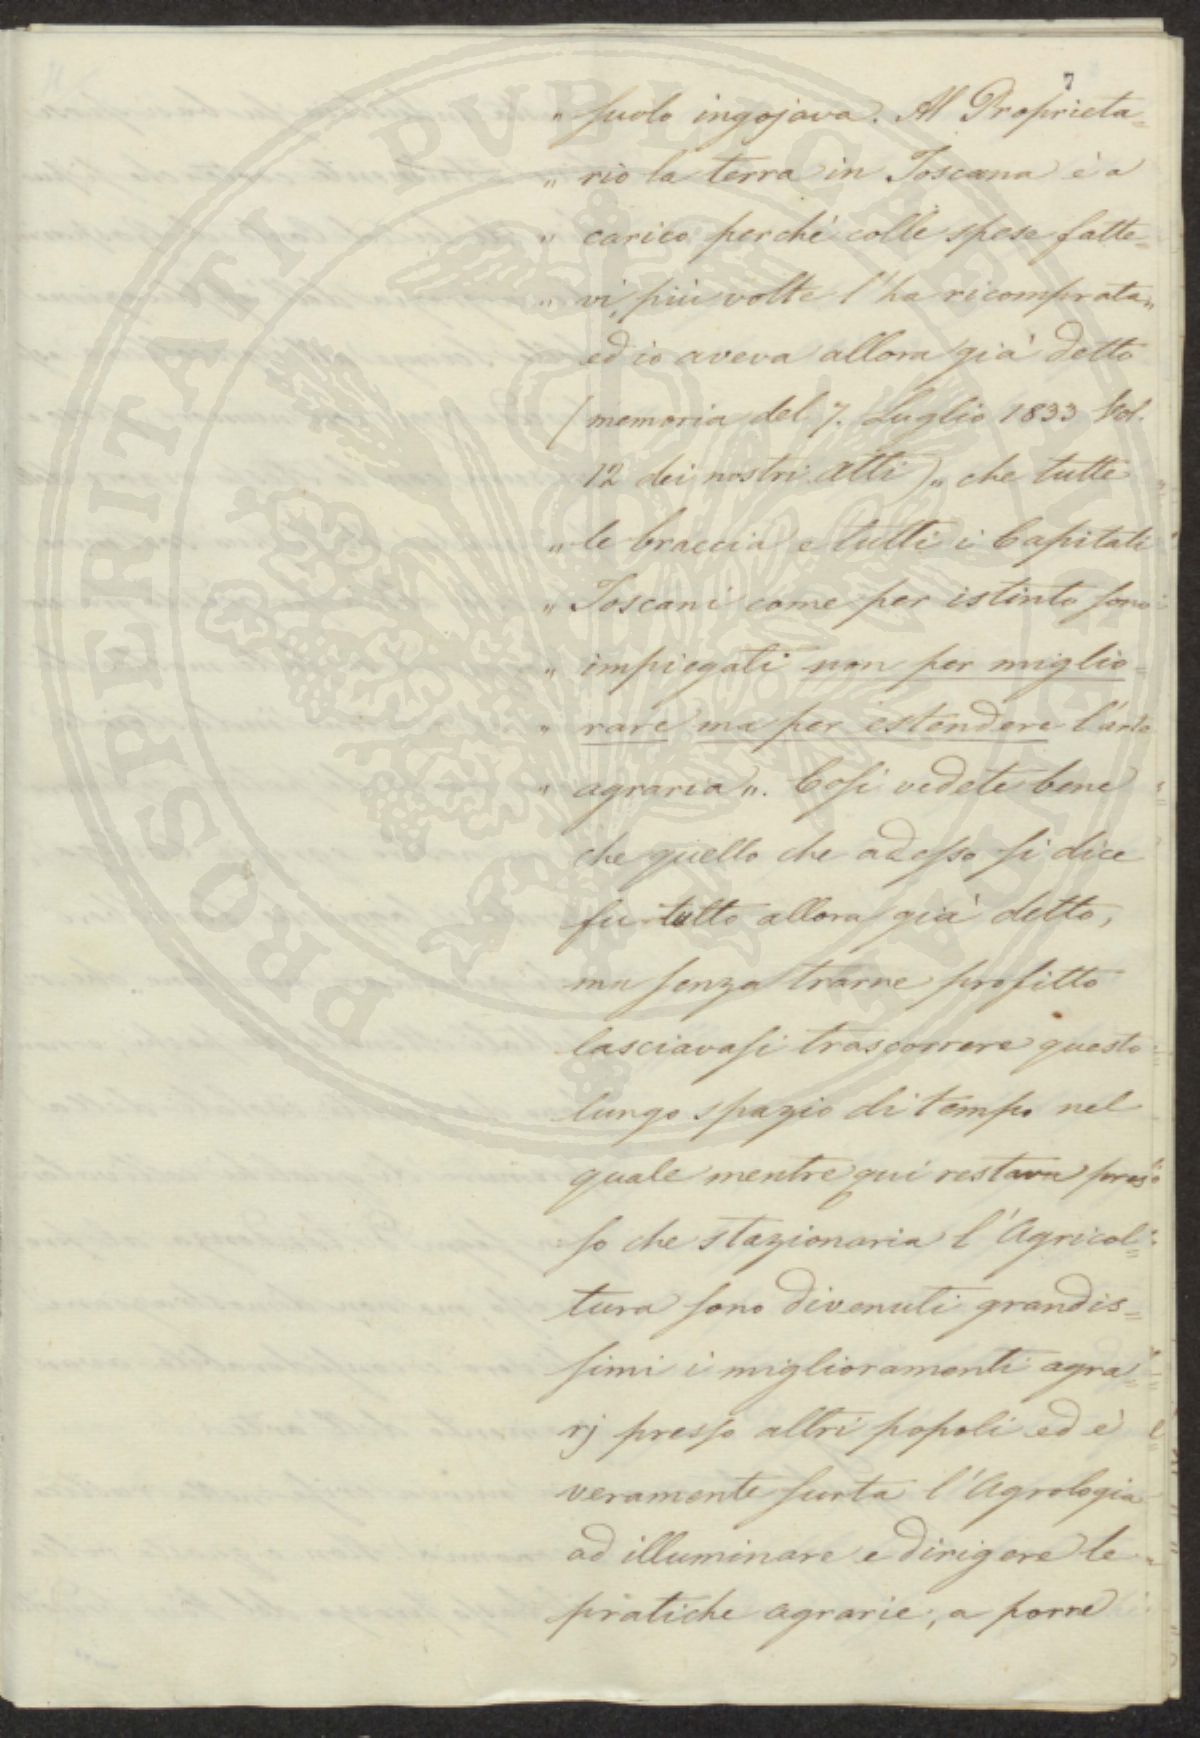 7
„ suolo ingojava. Al Proprieta=
„ rio la terra in Toscana è a
„ carico perché colle spese fatte=
„ vi, più volte l'ha ricomprata„
ed io aveva allora già detto
(memoria del 7. Luglio 1833 Vol.
12 dei nostri Atti) „ che tutte
„ le braccia e tutti i Capitali
„ Toscani come per istinto sono
„ impiegati non per miglio=
„ rare ma per estendere l'arte
„ agraria„. Così vedete bene
che quello che adesso si dice
fu tutto allora già detto,
ma senza trarne profitto
lasciavasi trascorrere questo
lungo spazio di tempo nel
quale mentre qui restava pres=
so che stazionaria l'Agricol=
tura sono divenuti grandis=
simi i miglioramenti agra=
rj presso altri popoli ed è
veramente surta l'Agrologia
ad illuminare e dirigere le
pratiche agrarie, a porre
PROSPERITATI PUBLICAE AUGENDAE